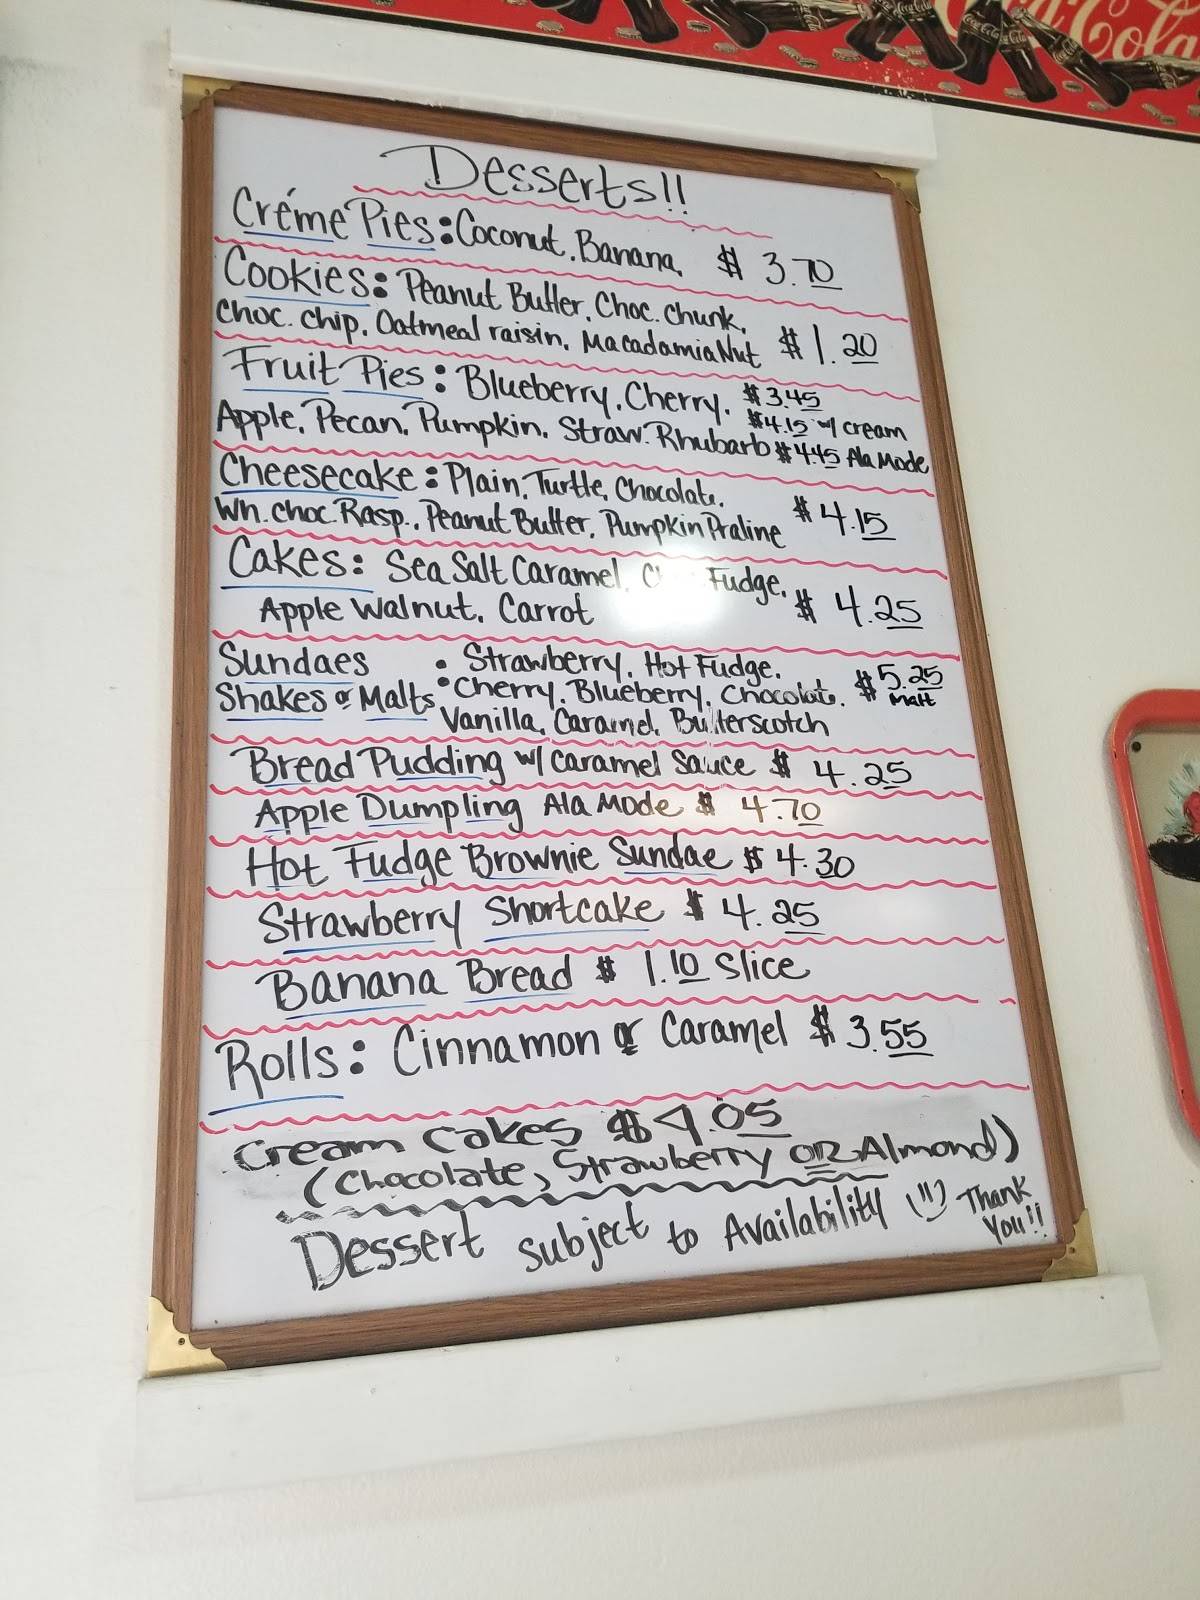 Coca-Cola
Desserts!!
Créme Pies: Coconut, Banana, $ 3.70
Cookies: Peanut Butter, Choc. Chunk,
Choc. Chip, Oatmeal raisin, Macadamia Nut $ 1.20
Fruit Pies: Blueberry, Cherry, $3.45
$4.15 w/ cream
Apple, Pecan, Pumpkin, Straw. Rhubarb $4.45 Ala Mode
Cheesecake: Plain, Turtle, Chocolate,
Wh. choc. Rasp., Peanut Butter, Pumpkin Praline $4.15
Cakes: Sea Salt Caramel, Fudge,
Apple Walnut, Carrot $ 4.25
Sundaes • Strawberry, Hot Fudge,
Shakes or Malts • Cherry, Blueberry, Chocolate, $5.25
Malt
Vanilla, Caramel, Butterscotch
Bread Pudding w/ Caramel Sauce $ 4.25
Apple Dumpling Ala Mode $ 4.70
Hot Fudge Brownie Sundae $ 4.30
Strawberry Shortcake $ 4.25
Banana Bread $ 1.10 Slice
Rolls: Cinnamon or Caramel $ 3.55
Cream Cakes $4.05
(Chocolate, Strawberry OR Almond)
Dessert subject to Availability Thank
You!!